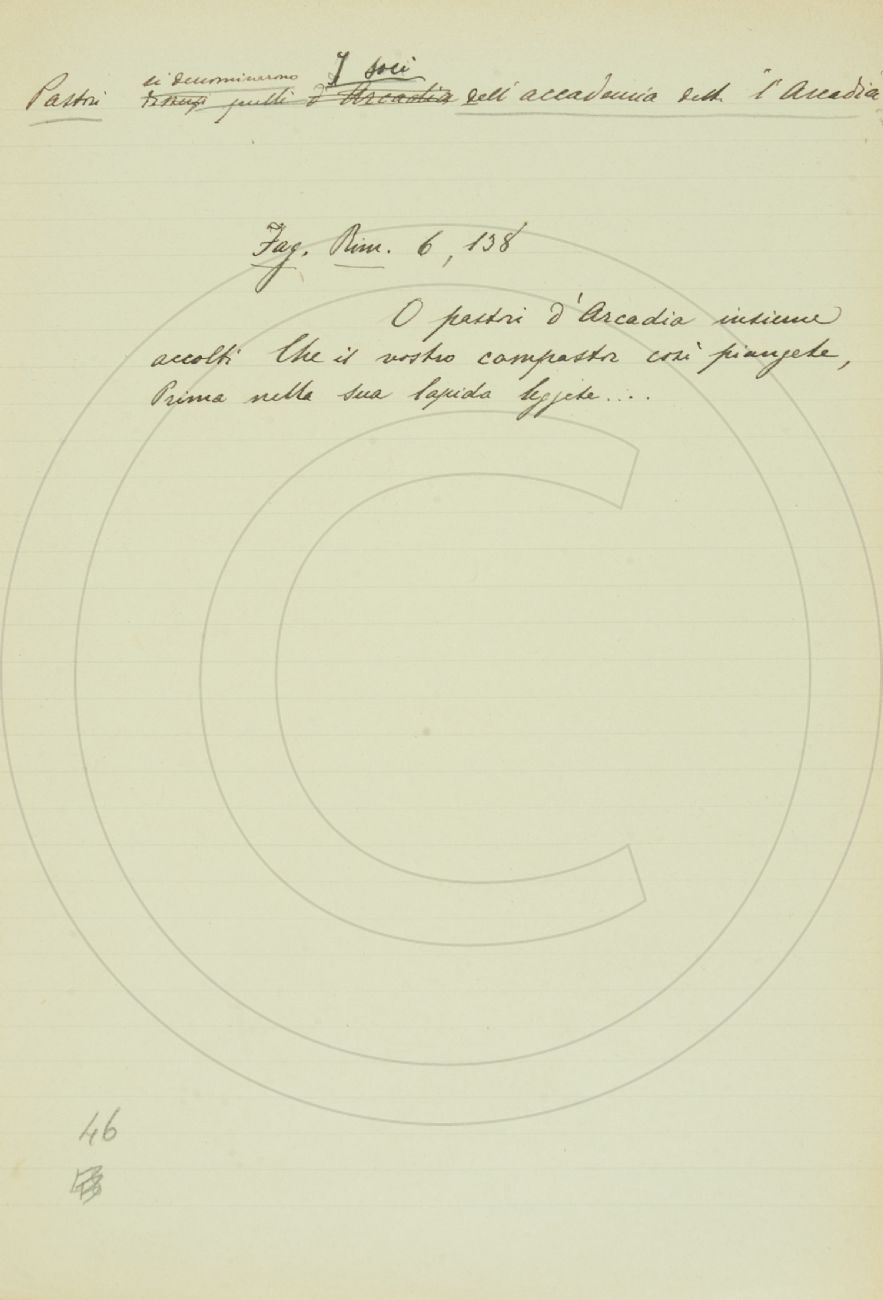 si denominarono I soci
Pastori diconsi quelli d'Arcadia dell'accademia dett. l'Arcadia
Fag. Rim. 6, 138
O pastori d'Arcadia insieme
accolti Che il vostro compastor così piangete,
Prima nella sua lapida leggete....
46